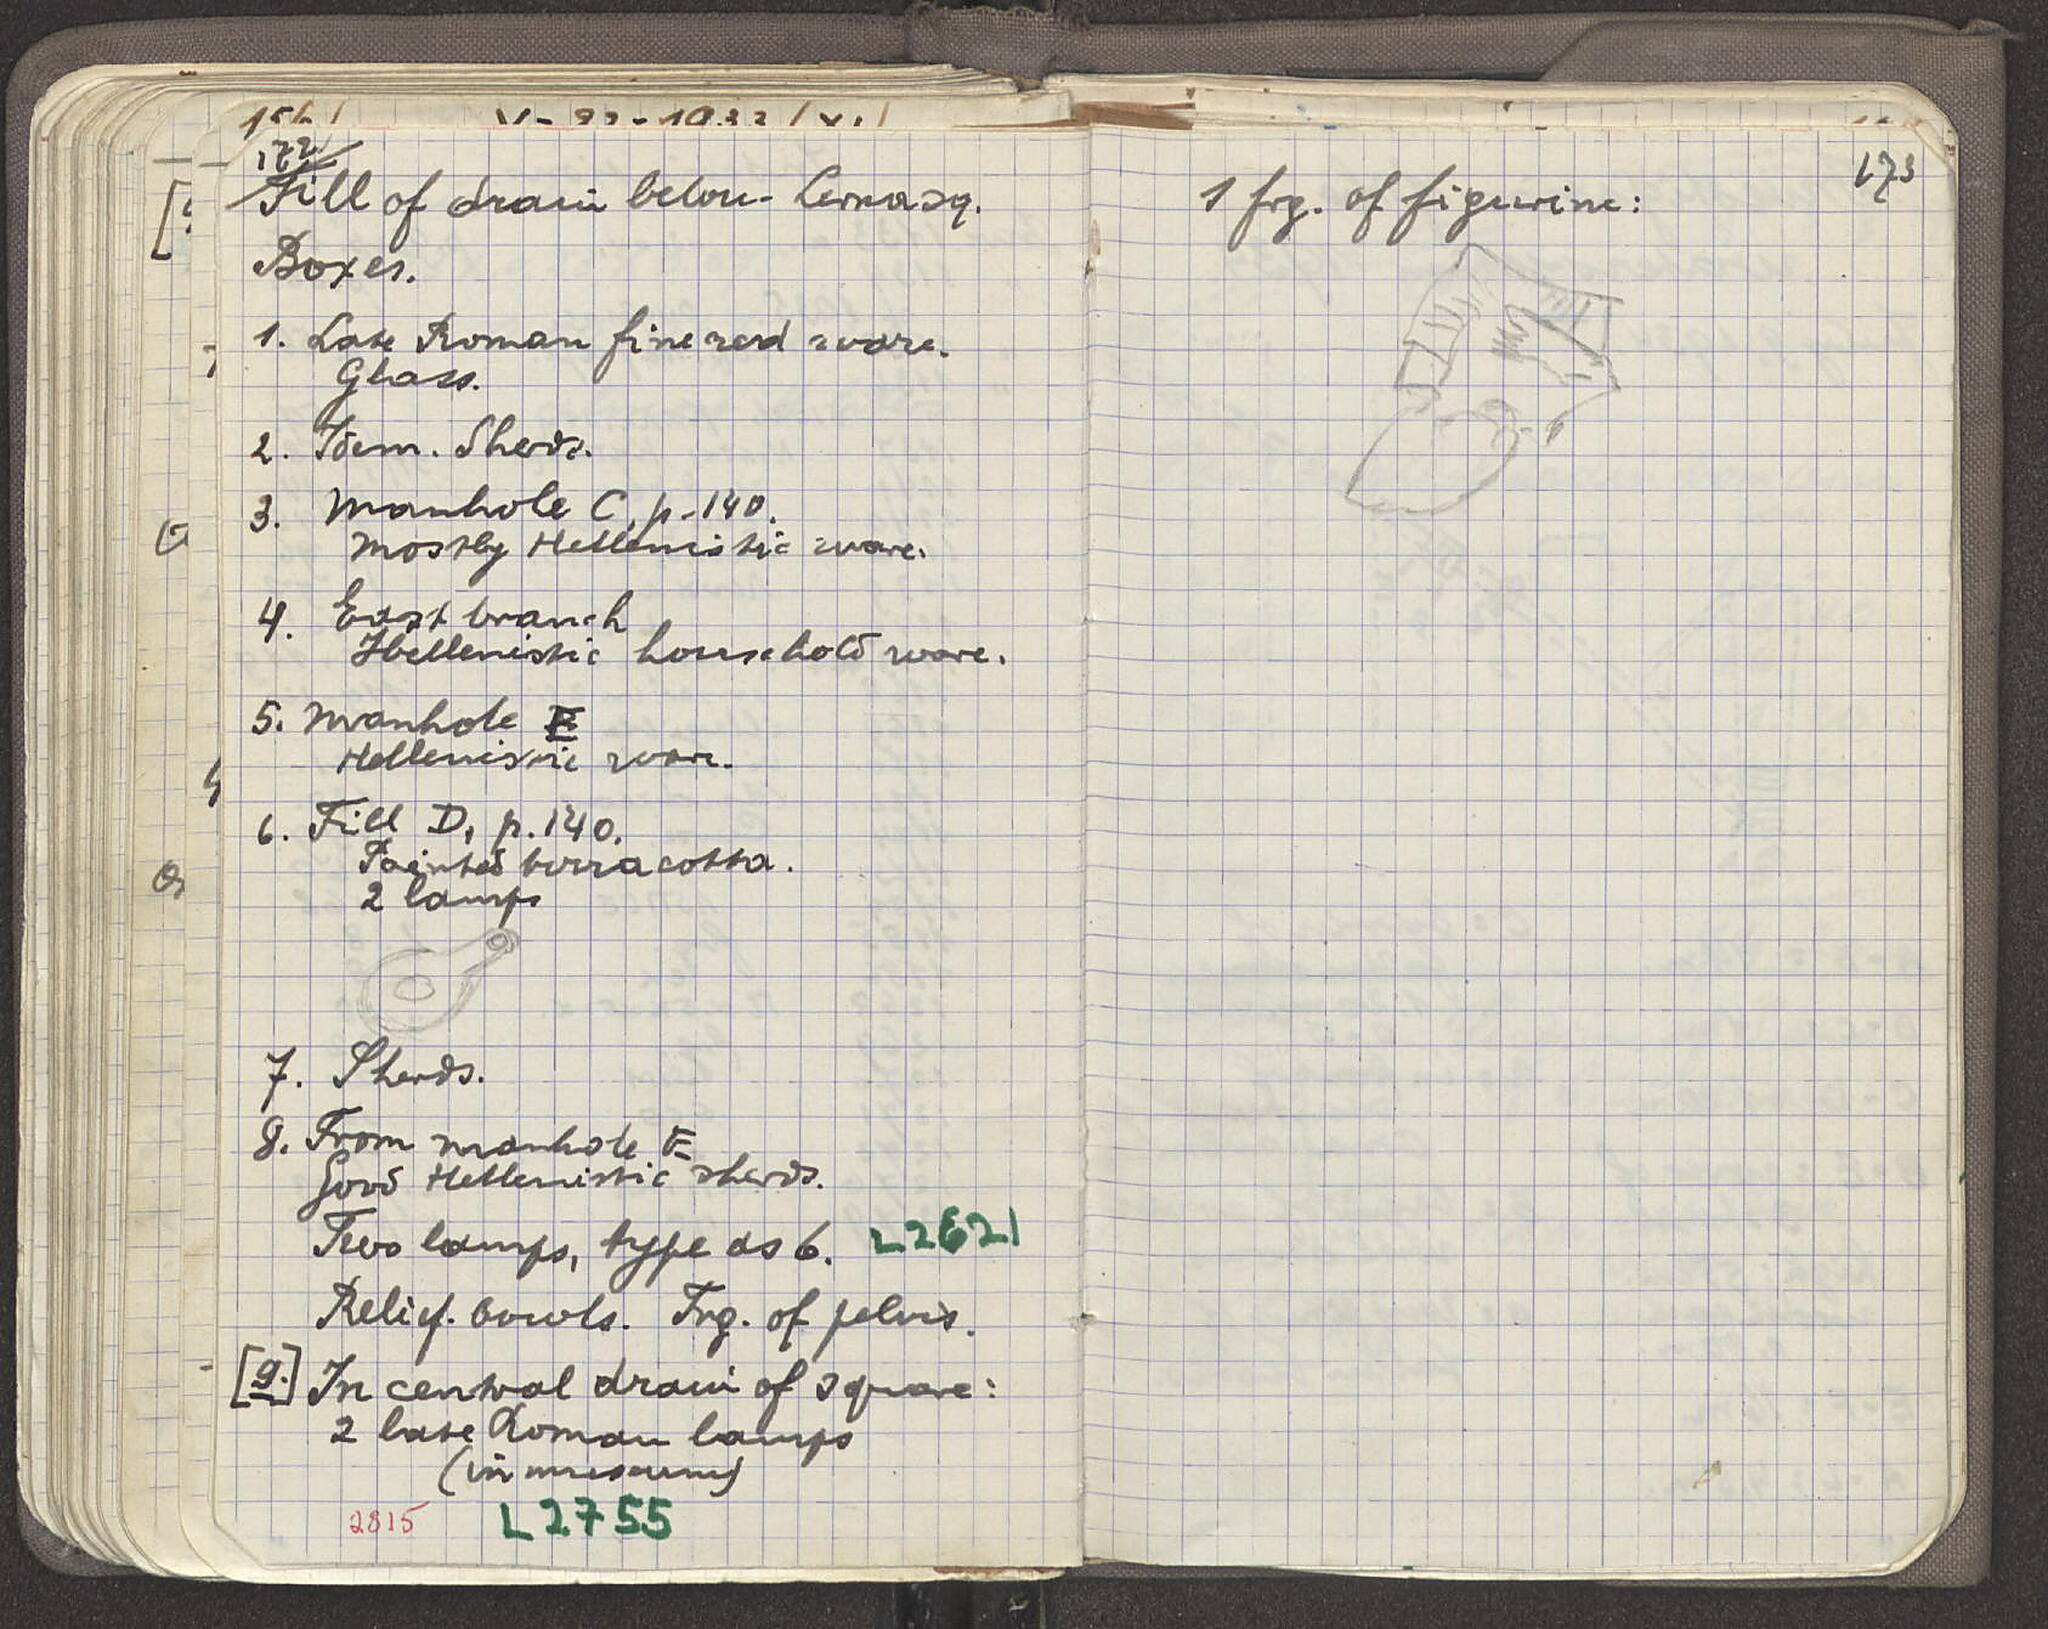 172
Fill of drain below Lerna sq.
Boxes.
1. Late Roman fine red ware.
Glass.
2. Idem. Sherds.
3. Manhole C, p. 140.
Mostly Hellenistic ware.
4. East branch
Hellenistic household ware.
5. Manhole E
Hellenistic ware.
6. Fill D, p. 140.
Painted terracotta.
2 lamps
7. Sherds.
8. From manhole E
Good Hellenistic sherds.
Two lamps, type as 6. L2621
Relief. bowls. Frg. of pelvis.
[9.] In central drain of square:
2 late Roman lamps
(in museum)
2815 L2755
173
1 frg. of figurine: